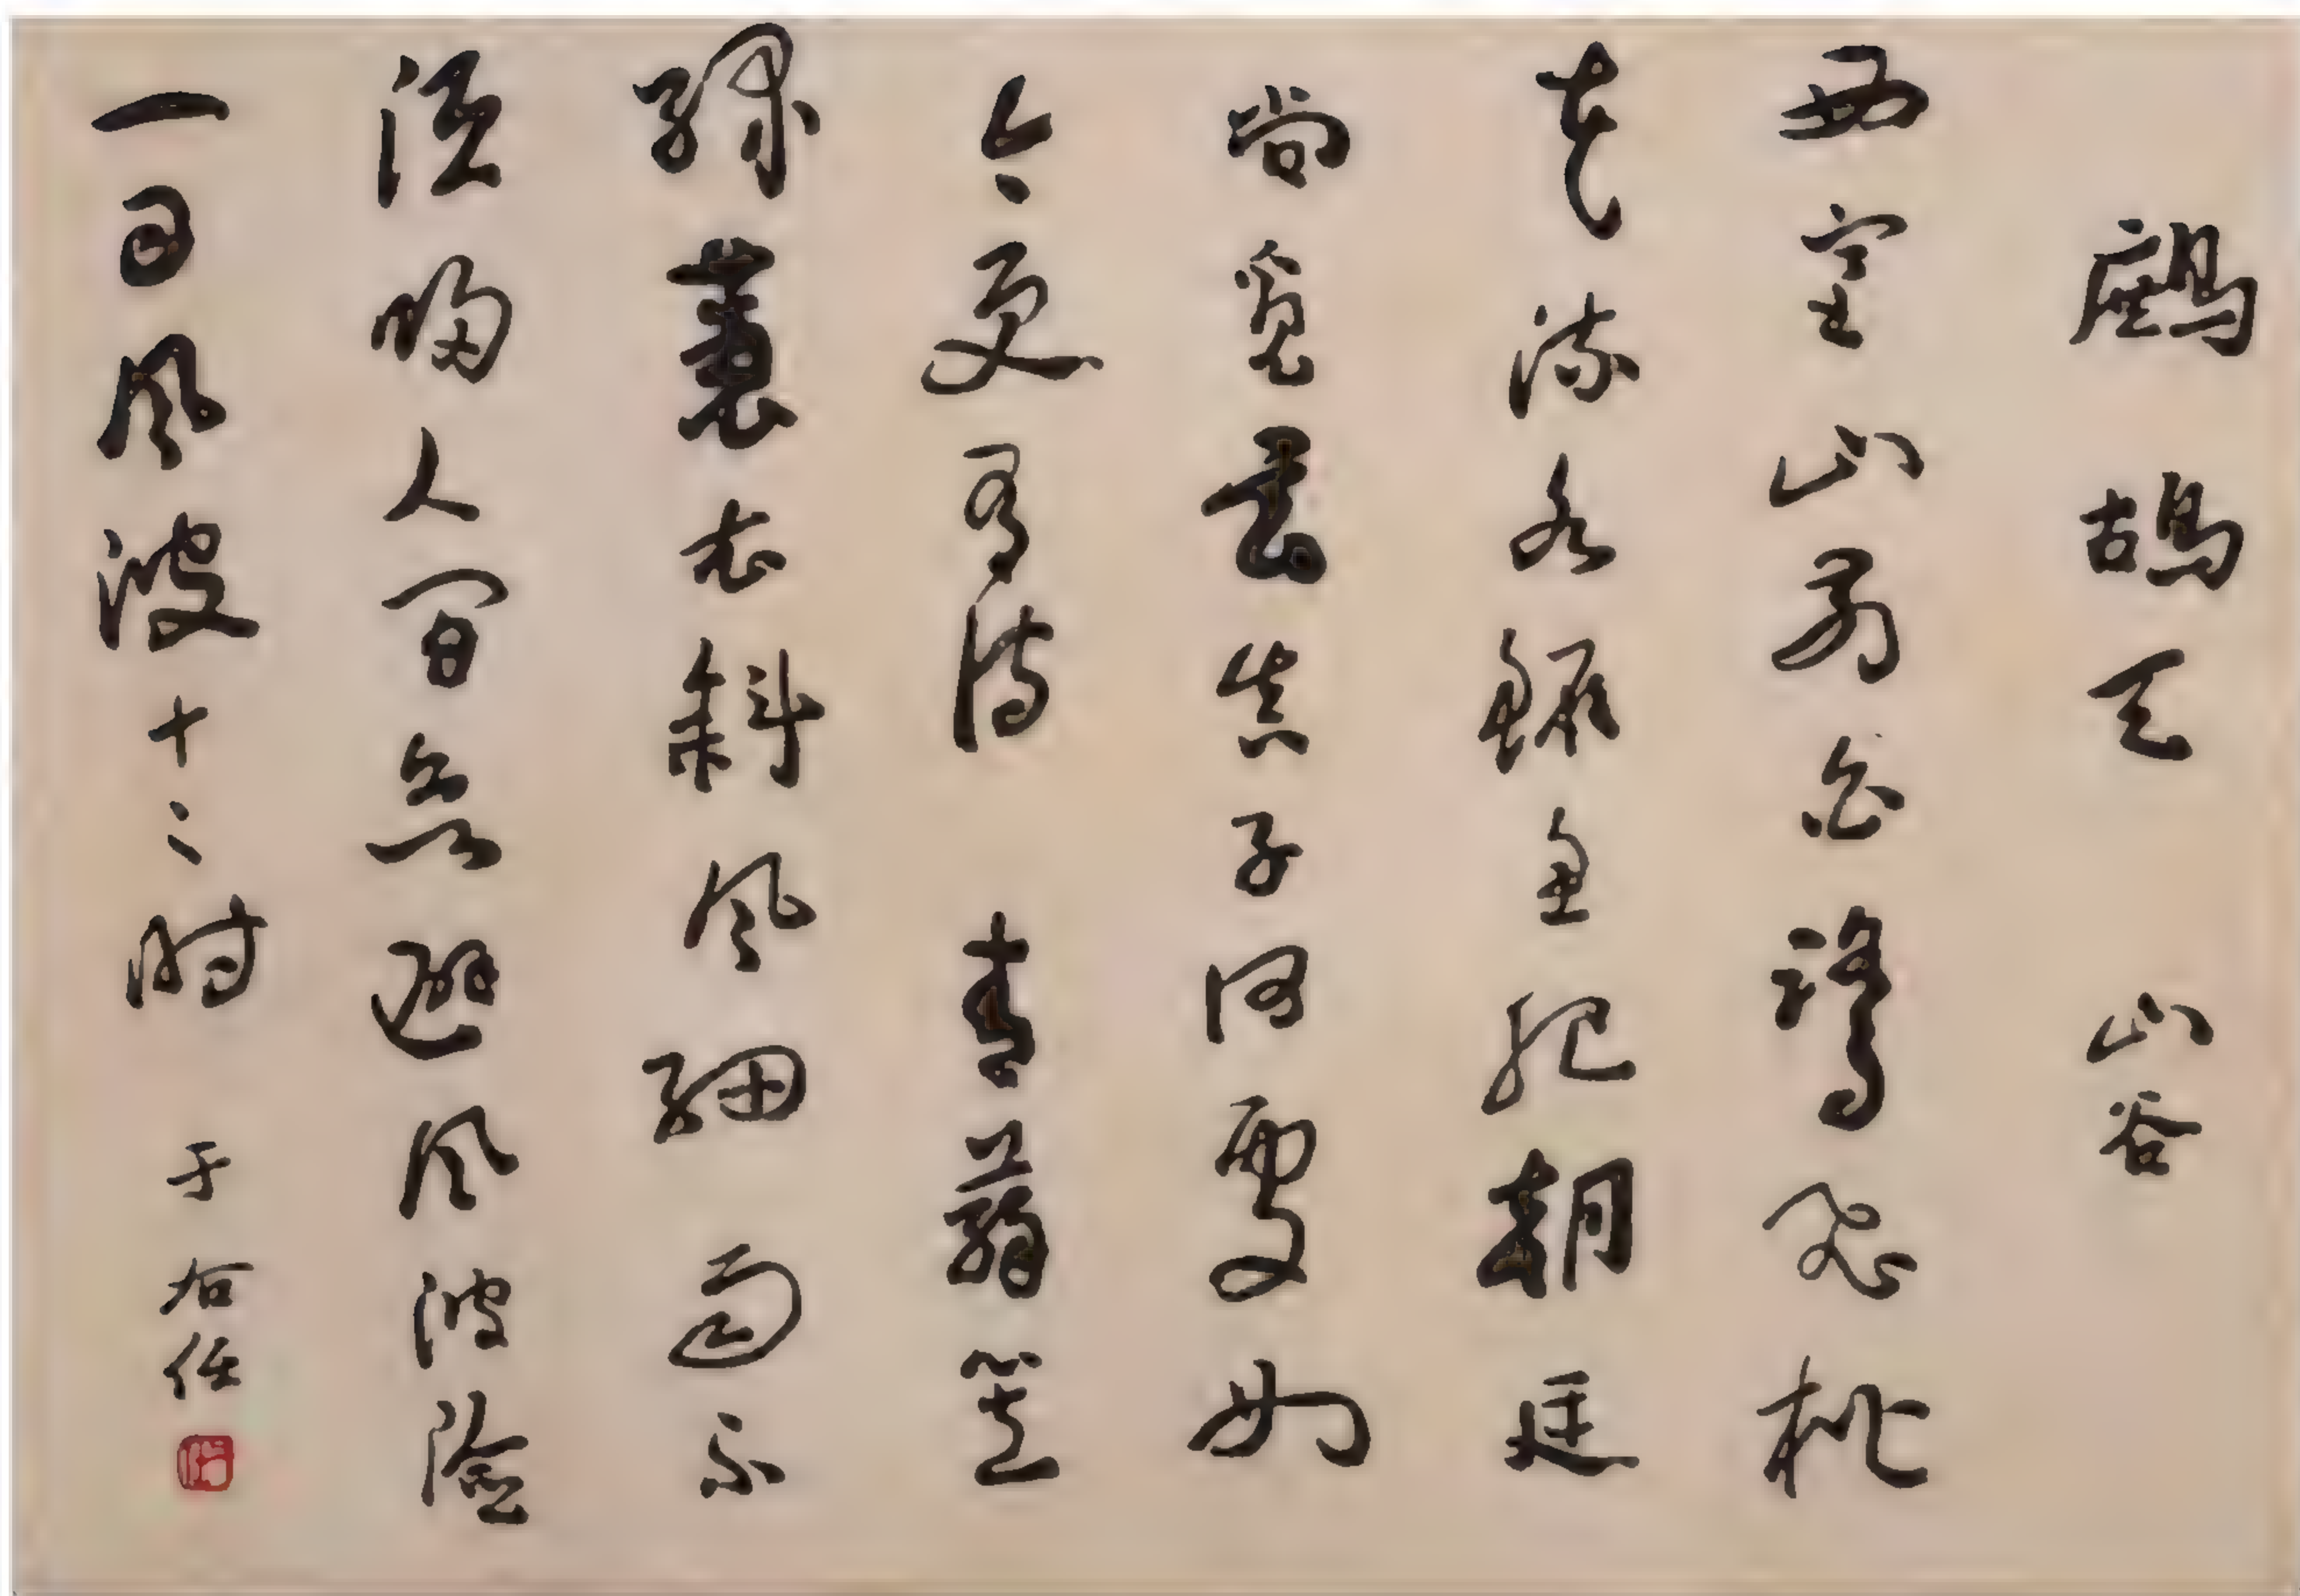 鷓鴣天 山谷
西塞山前白鷺飛桃
花流水鱖魚肥朝廷
尚覓玄真子何處如
今更有詩 青蒻笠
綠蓑衣斜風細雨不
須歸人間無避風波險
一日風波十二時 于右任